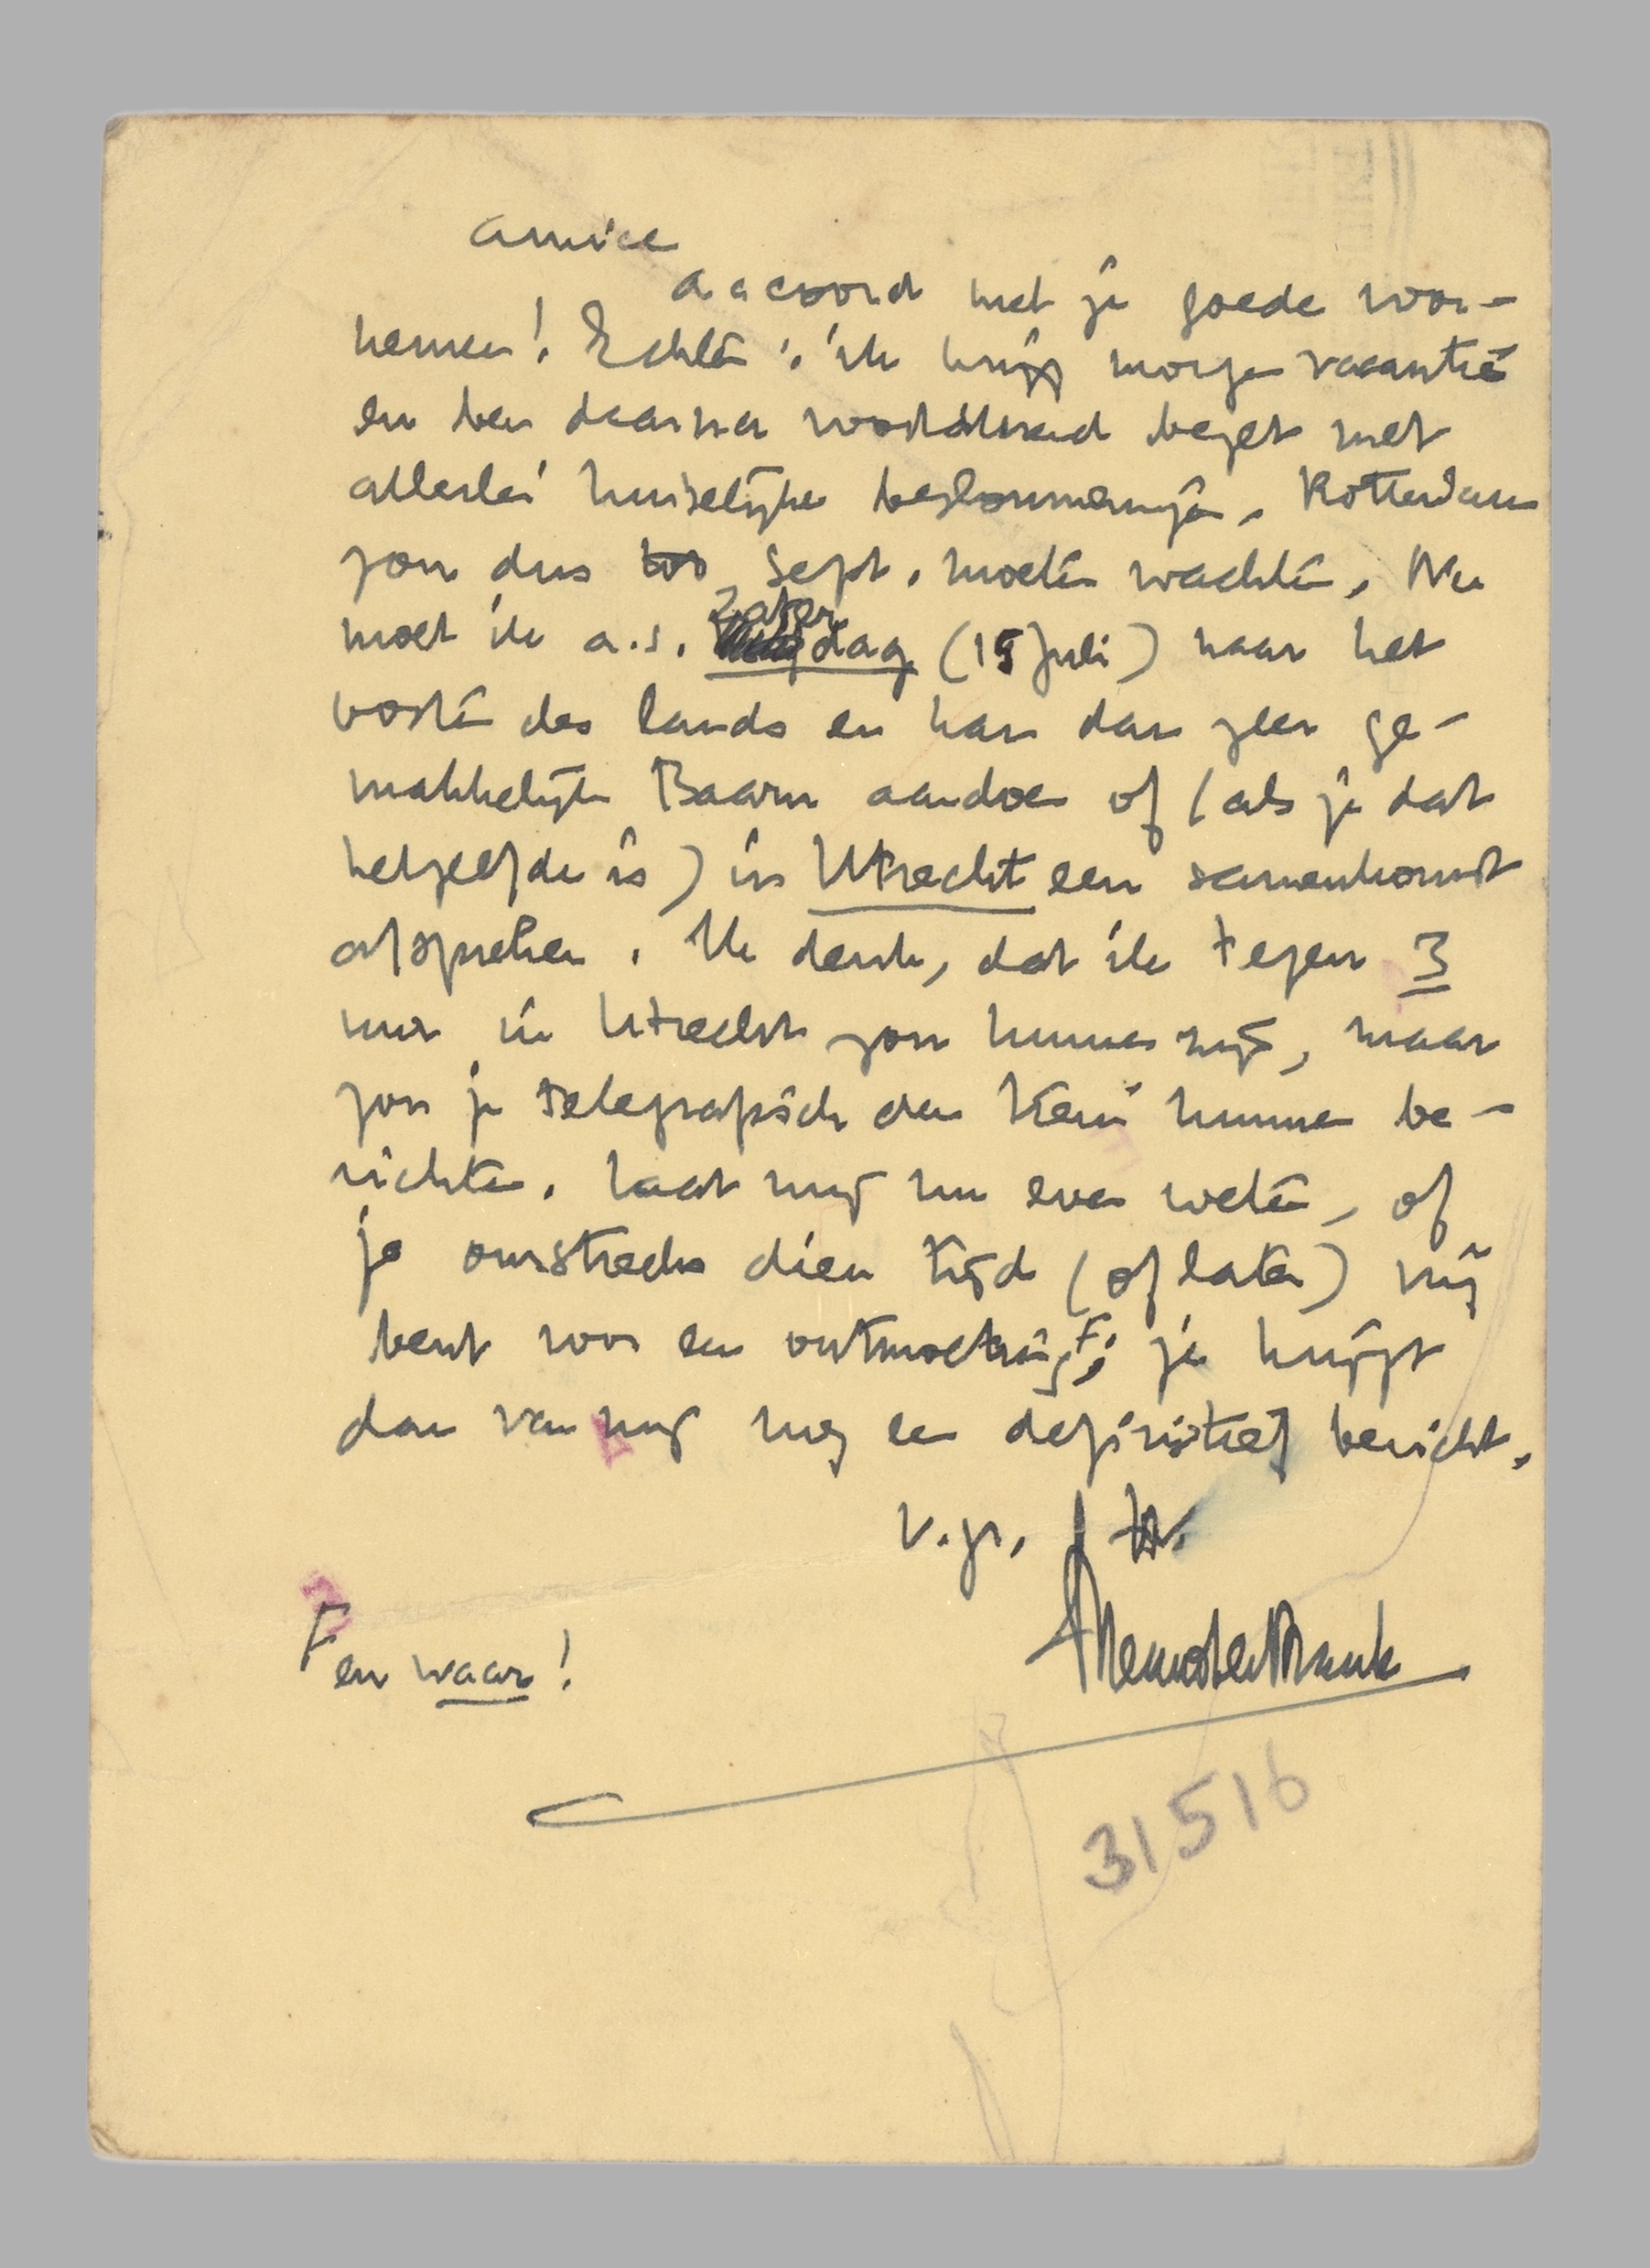 Amice
accoord met je goede voor-
nemen! Echter: ik krijg morgen vacantie
en ben daarna voortdurend bezet met
allerlei huiselijke beslommeringen. Rotterdam
zou dus tot Sept. moeten wachten. Nu
moet ik a.s. Zaterdag (15 Juli) naar het
oosten des lands en kan dan zeer ge-
makkelijk Baarn aandoen of (als je dat
hetzelfde is) in Utrecht een samenkomst
afspreken. Ik denk, dat ik tegen 3
uur in Utrecht zou kunnen zijn, maar
zou je telegrafisch den trein kunnen be-
richten. Laat mij nu even weten, of
je omstreeks dien tijd (of later) vrij
bent voor een ontmoeting F; je krijgt
dan van mij nog een definitief bericht.
v. gr. tt.
MennoterBraak
F en waar!
31516